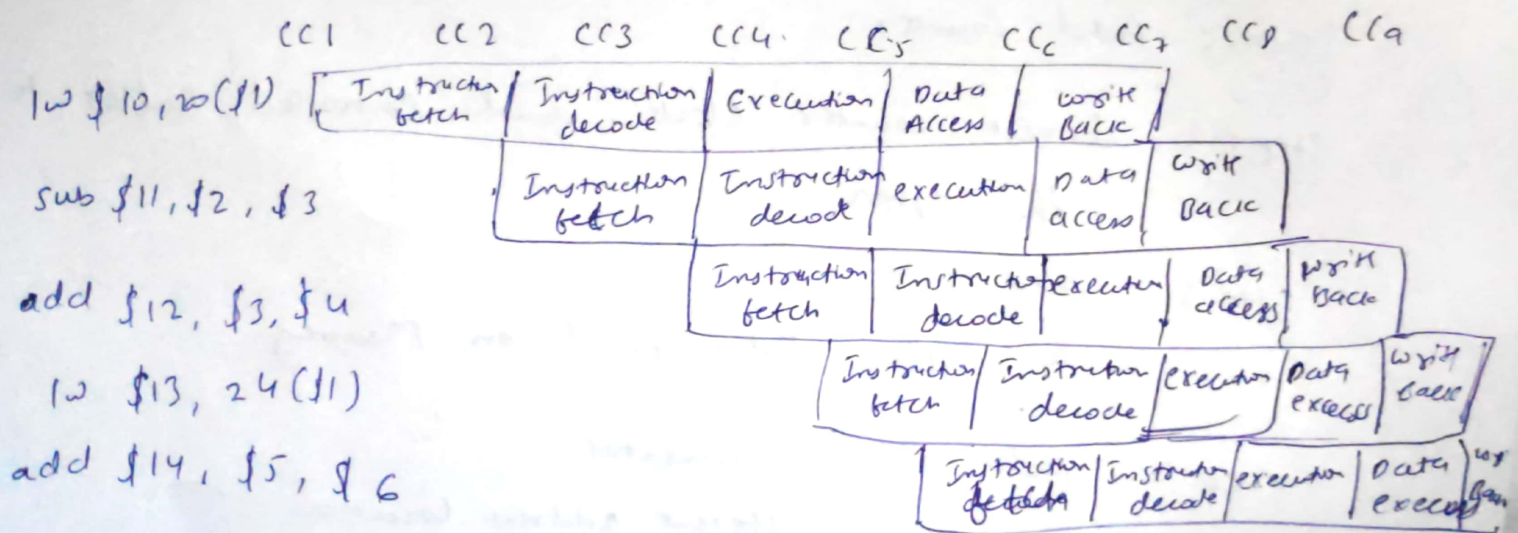 CC1 CC2 CC3 CC4 CC5 CC6 CC7 CC8 CC9
lw $10, 20($1)
Instruction fetch
Instruction decode
Execution
Data Access
Write Back
sub $11, $2, $3
Instruction fetch
Instruction decod
execution
Data access
Write Back
add $12, $3, $4
Instruction fetch
Instruction decode
execution
Data access
Write Back
lw $13, 24($1)
Instruction fetch
Instruction decode
execution
Data excess
Write back
add $14, $5, $6
Instruction fetch
Instruction decode
execution
Data